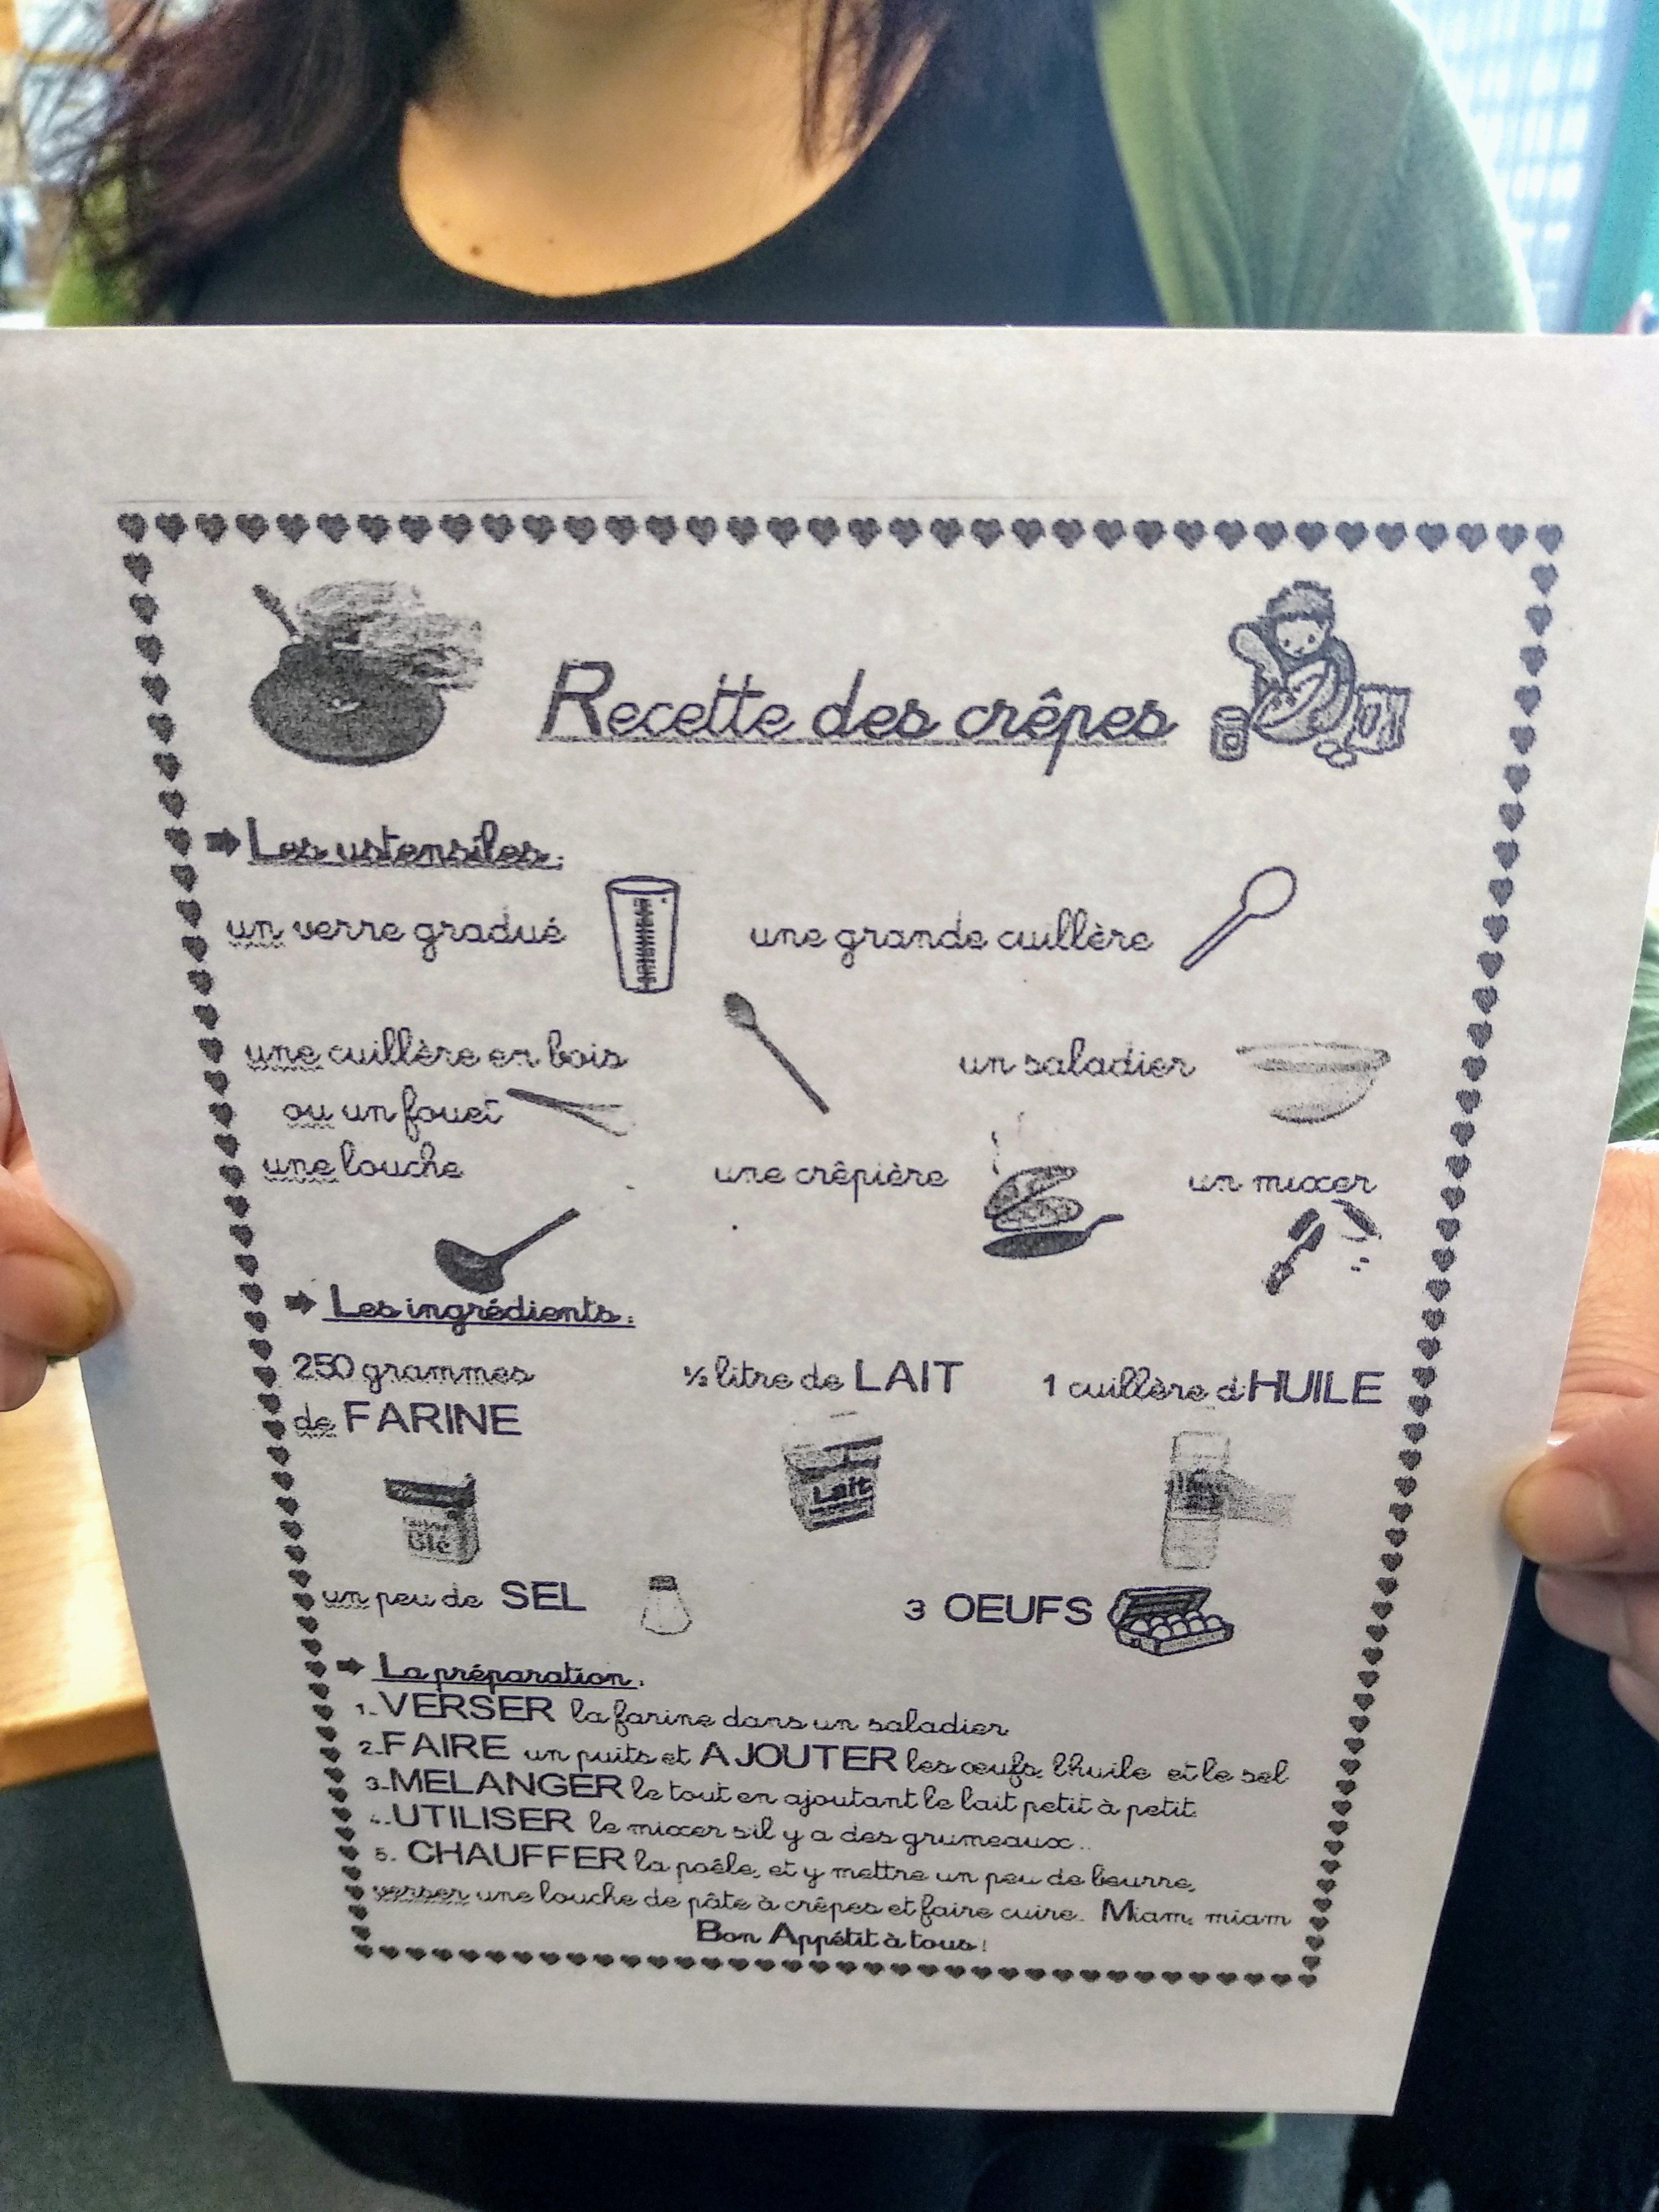 Recette des crêpes
Les ustensiles :
un verre gradué
une grande cuillère
une cuillère en bois
ou un fouet
un saladier
une louche
une crêpière
un mixer
Les ingrédients :
250 grammes
de FARINE
½ litre de LAIT
1 cuillère d'HUILE
Lait
Blé
un peu de SEL
3 OEUFS
La préparation :
1. VERSER la farine dans un saladier
2. FAIRE un puits et AJOUTER les œufs, l'huile et le sel
3. MELANGER le tout en ajoutant le lait petit à petit.
4. UTILISER le mixer s'il y a des grumeaux..
5. CHAUFFER la poêle, et y mettre un peu de beurre,
verser une louche de pâte à crêpes et faire cuire. Miam, miam
Bon Appétit à tous !